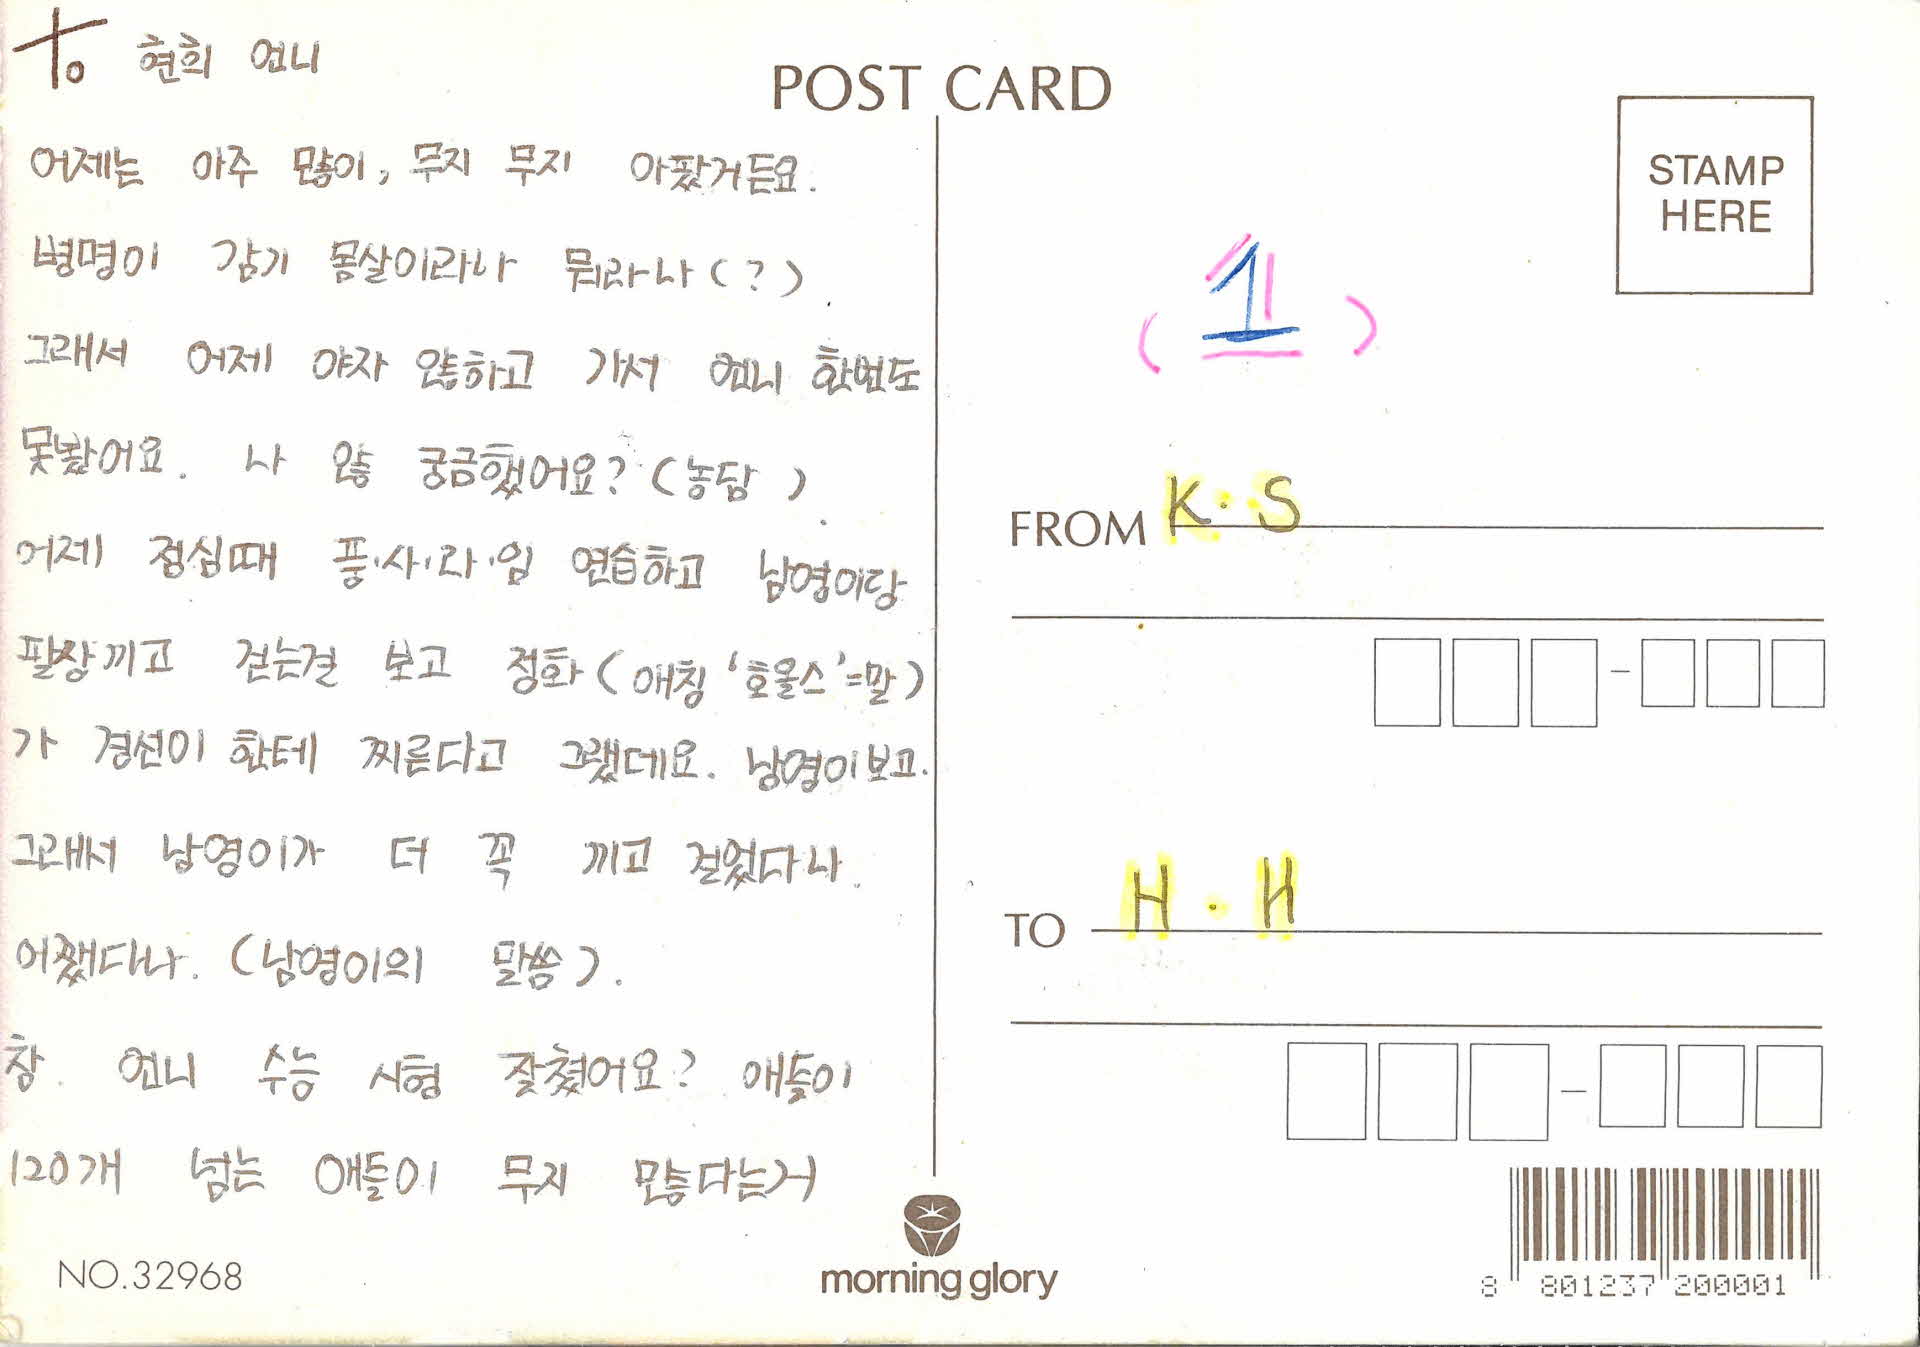 to 현희 언니
어제는 아주 많이, 무지 무지 아팠거든요.
병명이 감기 몸살이라나 뭐라나(?)
그래서 어제 야자 않하고 가서 언니 한번도
못봤어요. 나 않 궁금했어요? (농담)
어제 점심때 풍·사·라·임 연습하고 남영이당
팔장끼고 걷는걸 보고 정화(애칭 '호올스'=말)
가 경선이 한테 찌른다고 그랬데요. 남영이보고.
그래서 남영이가 더 꼭 끼고 걸었다나
어쨌다나. (남영이의 말씀).
참. 언니 수능 시험 잘쳤어요? 애들이
120개 넘는 애들이 무지 많다는거
NO.32968
POST CARD
STAMP
HERE
(1)
FROM K·S
TO H·H
morning glory
8 801237 200001